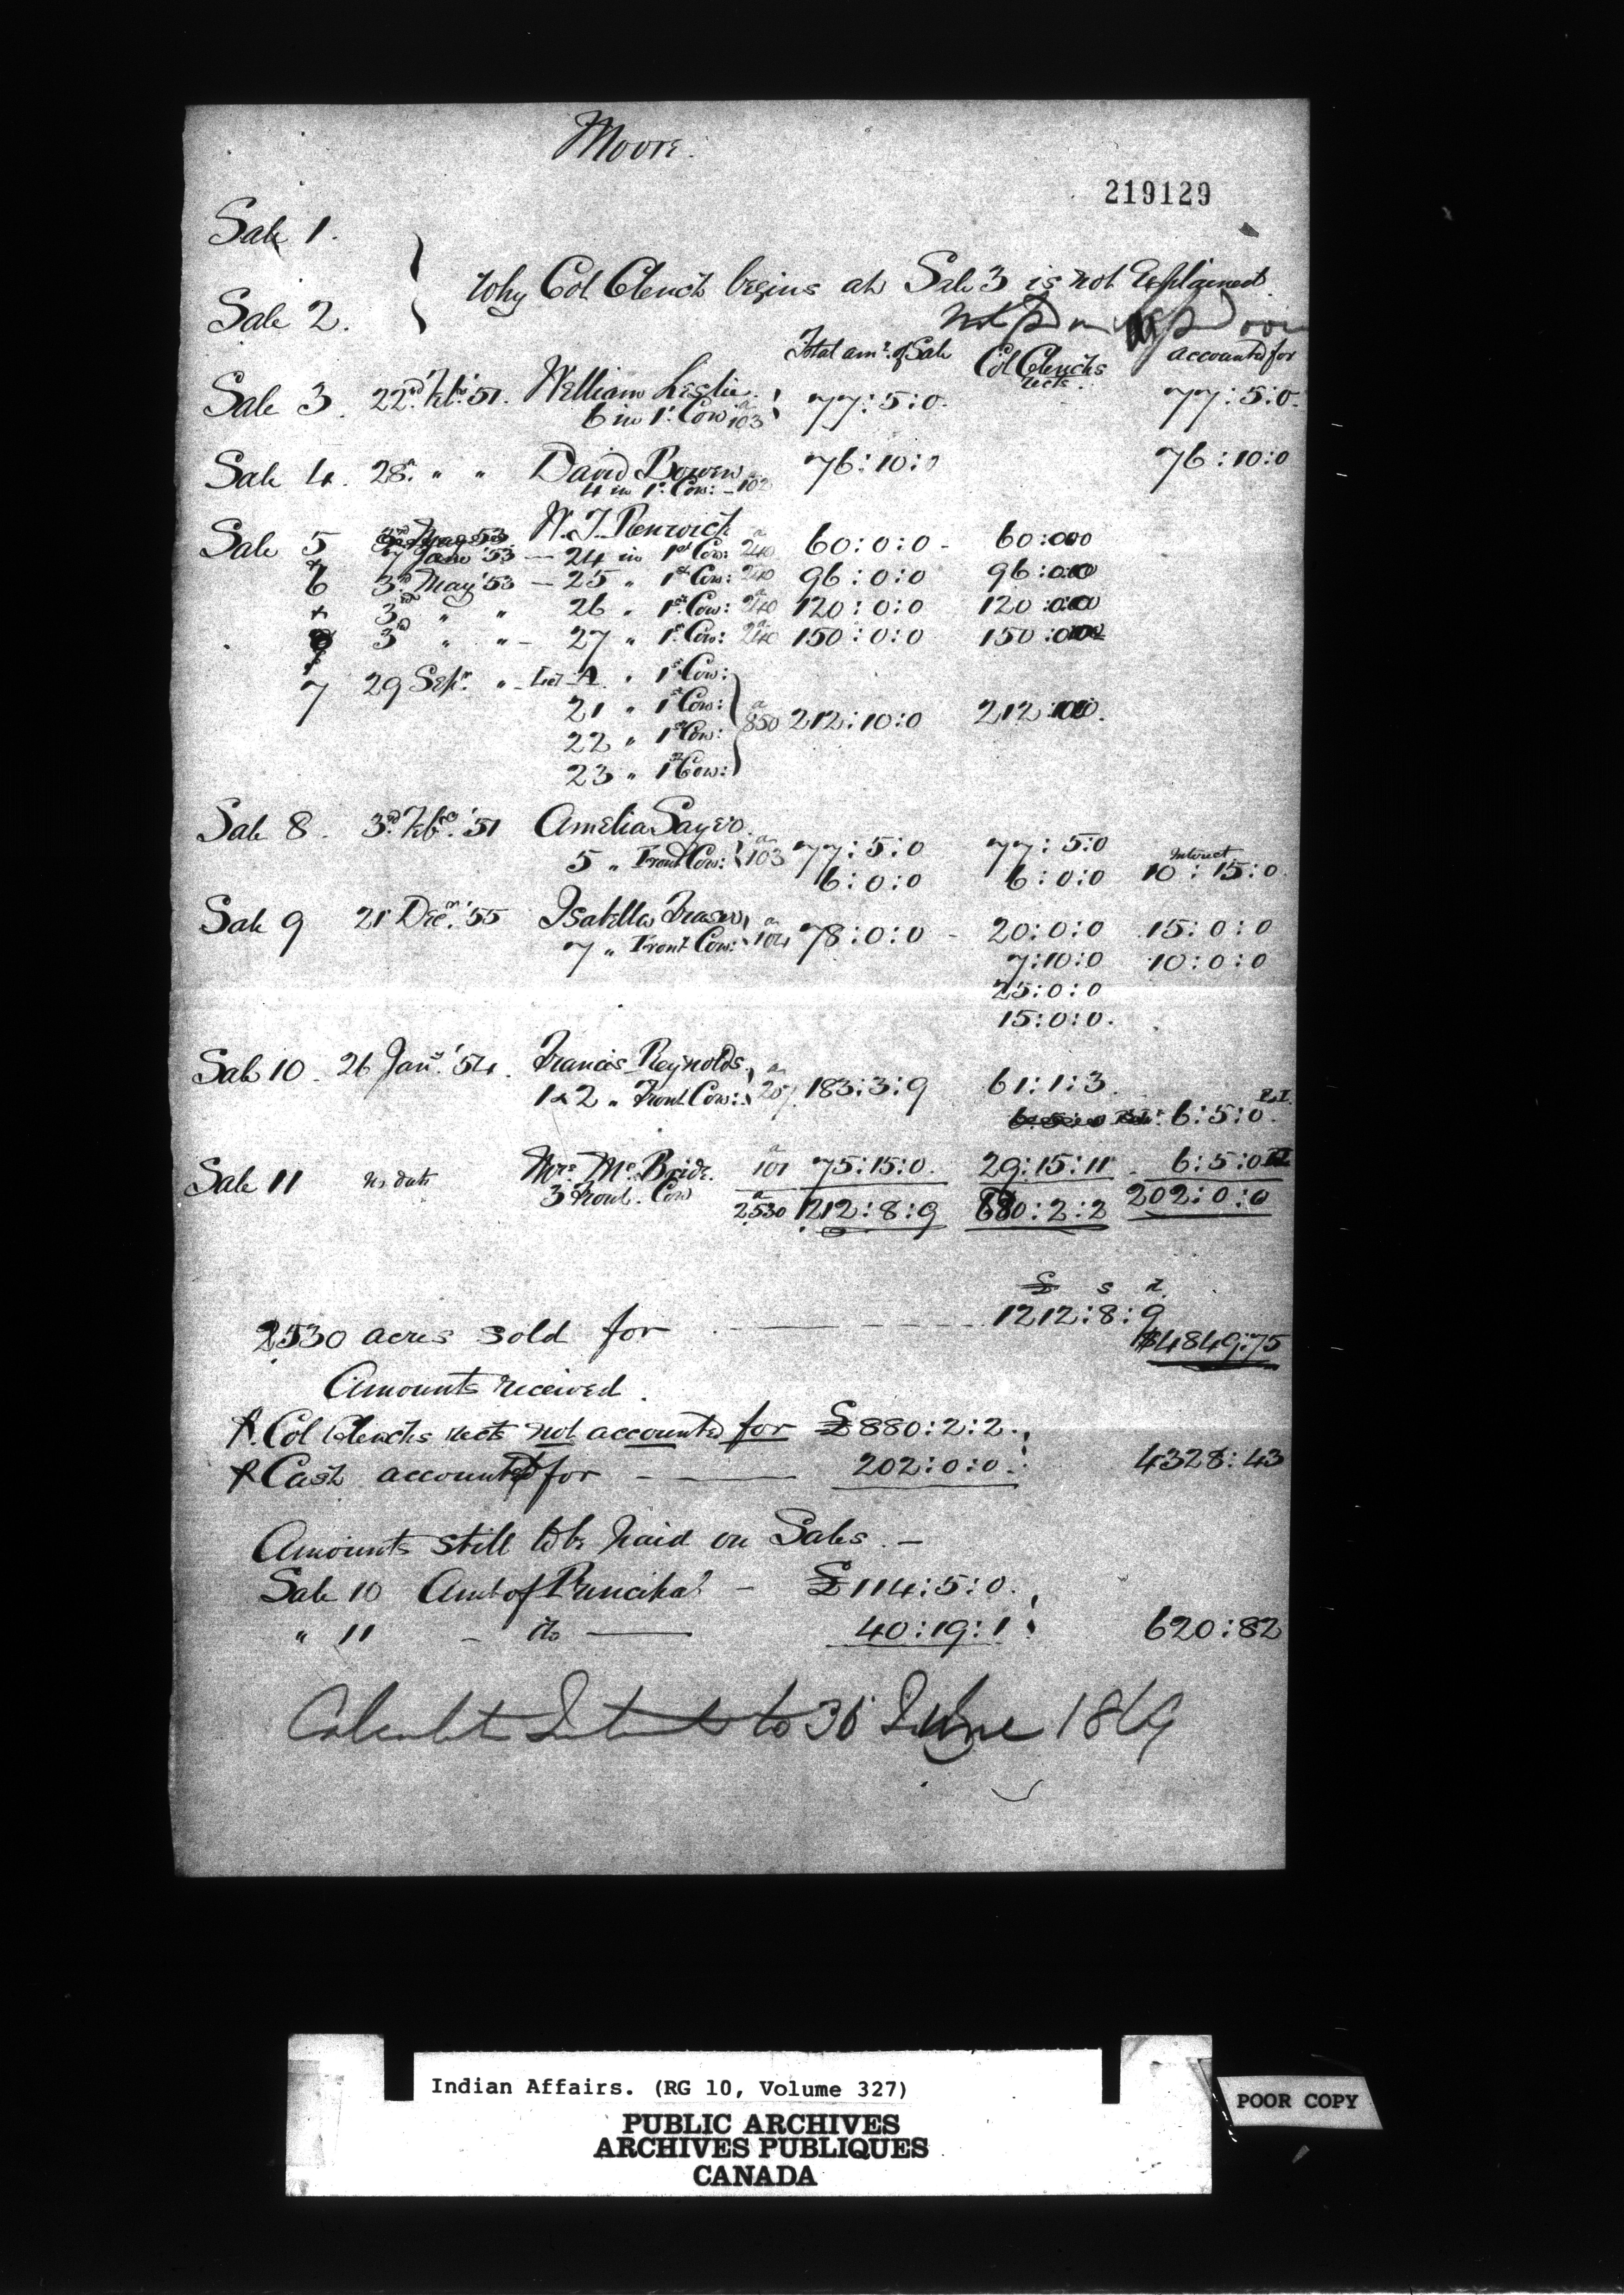 Moore.
219129
Sale 1.
Why Col Clench begins at Sale 3 is not Explained.
Sale 2.
Total amt. of Sale Col Clench's rects. accounted for
Sale 3. 22nd Feb: '51. William Leslie 77:5:0. 77:5:0.
6 in 1st Con: a 103
Sale 4. 28th " " David Bowen 76:10:0 76:10:0
4 in 1st Con: - a 102
Sale 5 W. T. Renwick
7 Jany '53 - 24 in 1st Con: a 240 60:0:0 - 60:0:0
6 3rd May '53 - 25 " 1st Con: 240 96:0:0 96:0:0
3rd " " 26 " 1st Con: a 240 120:0:0 120:0:0
3rd " " - 27 " 1st Con: a 240 150:0:0 150:0:0
7 29 Sepr. " - Lot A. " 1st Con:
21 " 1st Con:
a 850 212:10:0 212:10:0.
22 " 1st Con:
23 " 1st Con:
Sale 8. 3rd Feb: '51 Amelia Sayers.
5 " Front Con: a 103 77:5:0 77:5:0 Interest
6:0:0 6:0:0 10:15:0.
Sale 9 21st Decr. '55 Isabella Fraser
7 " Front Con: a 104 78:0:0 - 20:0:0 15:0:0
7:10:0 10:0:0
25:0:0
15:0:0.
Sale 10. 26 Jany. '54. Francis Reynolds
1 & 2 " Front Con: a 207 183:3:9 61:1:3.
6:5:0.
Sale 11 no date Mrs. McBride. a 101 75:15:0. 29:15:11 6:5:0
3 Front. Con a 2530 1212:8:9 880:2:2 202:0:0
£ s d.
2530 acres sold for 1212:8:9
$4849:75
Amounts received.
Col Clenchs rects not accounted for £880:2:2.
Cash accounted for 202:0:0. 4328:43
Amounts still to be paid on Sales. -
Sale 10 Amt of Principal - £114:5:0.
" 11 - do 40:19:1 620:82
Calculate Interest to 30 June 1869
Indian Affairs. (RG 10, Volume 327)
PUBLIC ARCHIVES
ARCHIVES PUBLIQUES
CANADA
POOR COPY